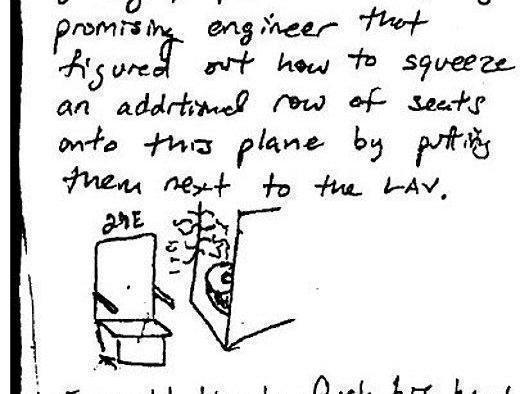 promising engineer that
figured out how to squeeze
an additional row of seats
onto this plane by putting
them next to the LAV.
29E